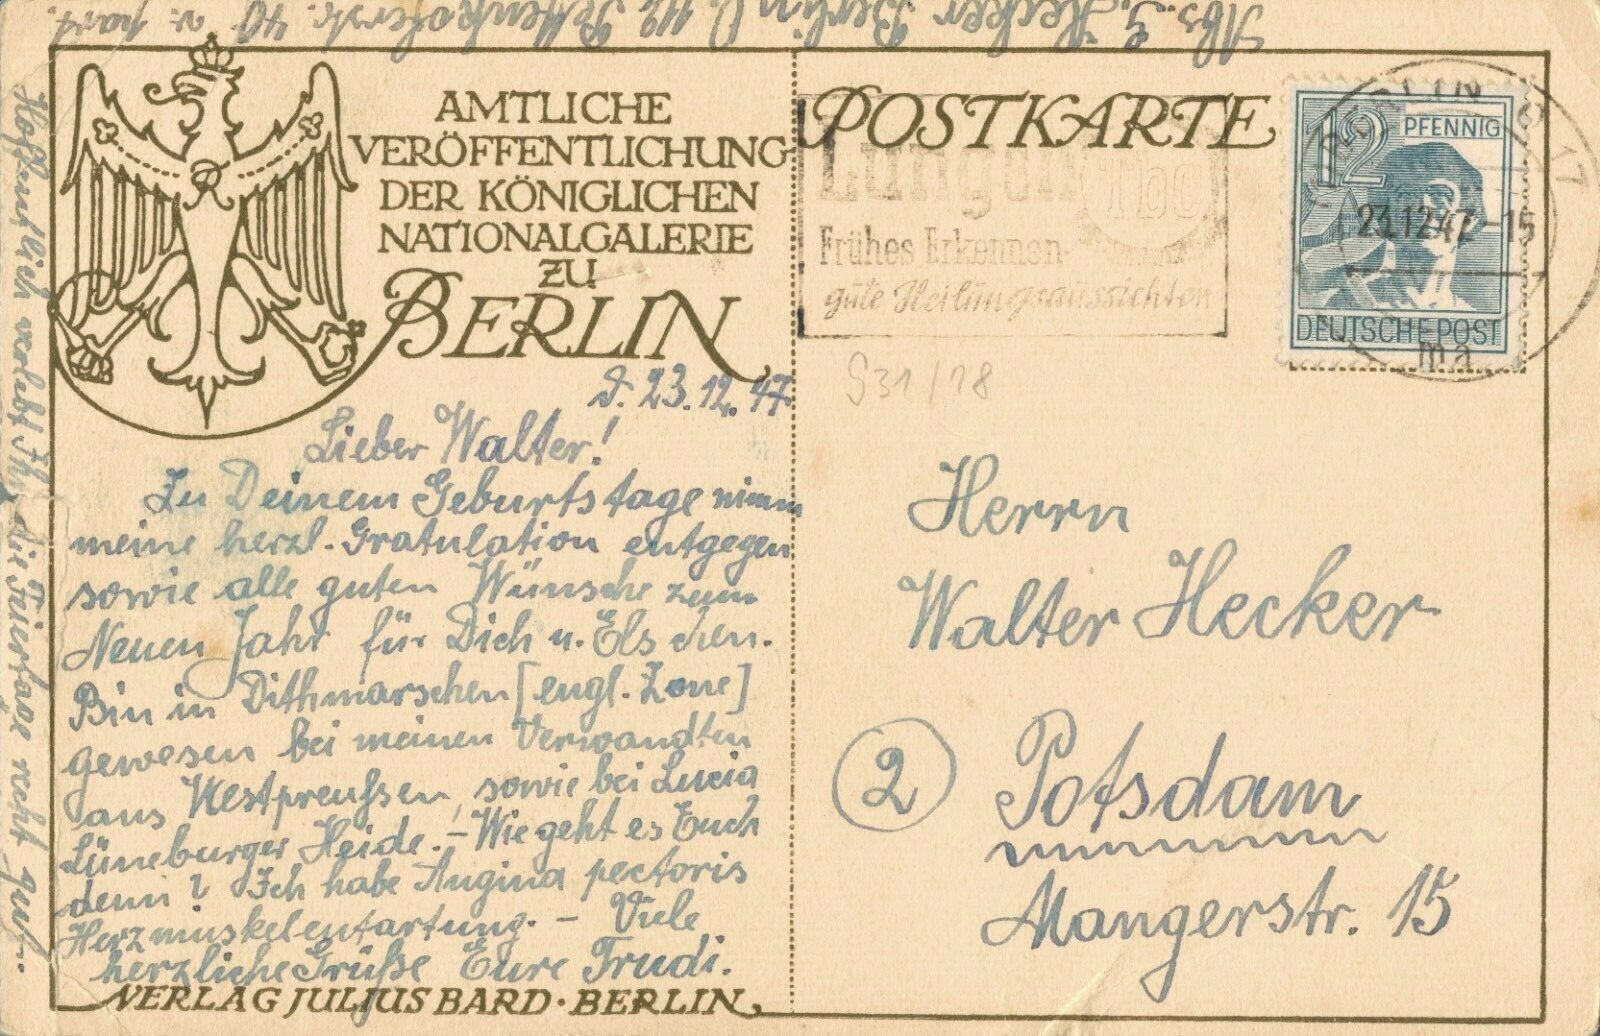 Abs. G. Hecker Berlin O 112 Pettenkoferstr. 40 v. part.
AMTLICHE
VERÖFFENTLICHUNG
DER KÖNIGLICHEN
NATIONALGALERIE
ZU
BERLIN
d. 23.12.47.
Lieber Walter!
Zu Deinem Geburtstage nimm
meine herzl. Gratulation entgegen
sowie alle guten Wünsche zum
Neuen Jahr für Dich u. Elschen.
Bin in Dithmarschen [engl. Zone]
gewesen bei meinen Verwandten
aus Westpreußen, sowie bei Lucia
Lüneburger Heide. – Wie geht es Euch
denn? Ich habe Angina pectoris
Herzmuskelentartung. – Viele
herzliche Grüße Eure Trudi.
Hoffentlich verlebt Ihr die Feiertage recht gut.
VERLAG JULIUS BARD · BERLIN
POSTKARTE
Lungen Tbc
Frühes Erkennen-
gute Heilungsaussichten
12 PFENNIG
DEUTSCHE POST
BERLIN 17
23.12.47.-15
ma
S31/18
Herrn
Walter Hecker
2 Potsdam
Mangerstr. 15